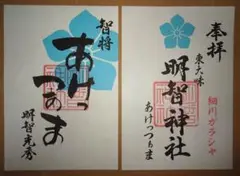 智将
あけっ
つぁま
明智光秀
奉拝
東大味
明智神社
あけっつぁま
細川ガラシャ